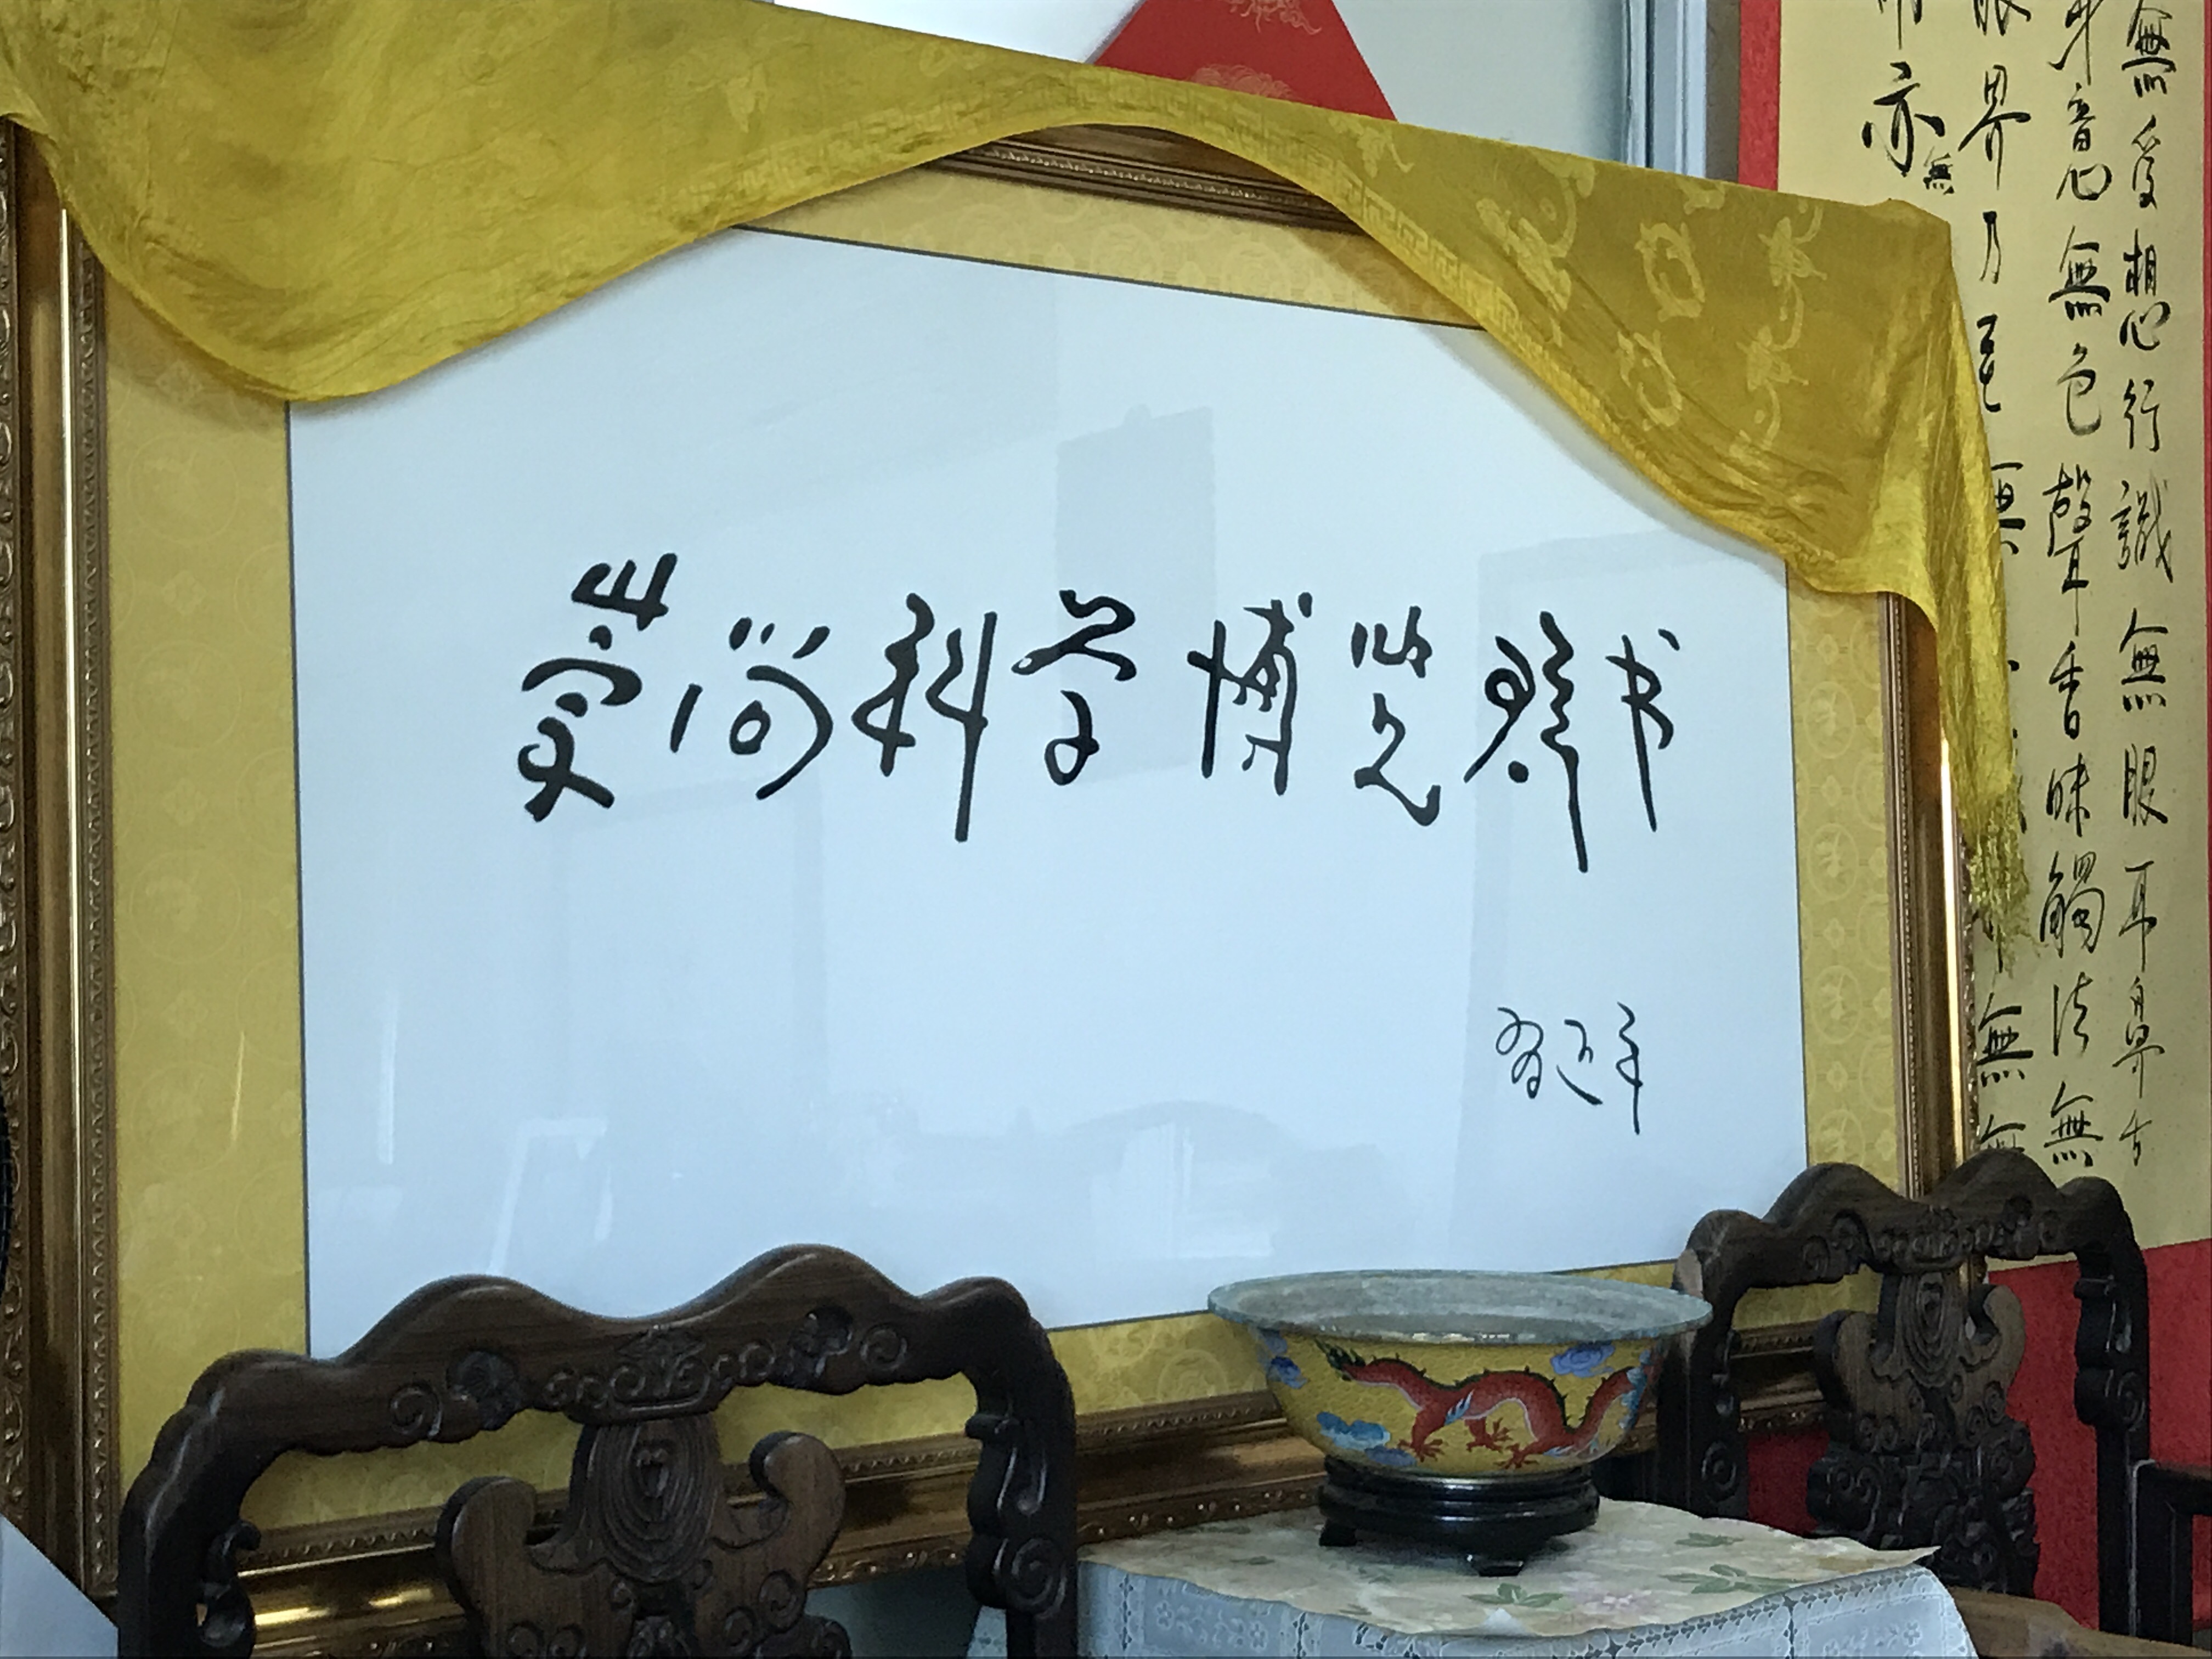 崇尚科学博览群书
無受想行識無眼耳鼻舌
身意無色聲香味觸法無
眼界乃至無
無無
亦無